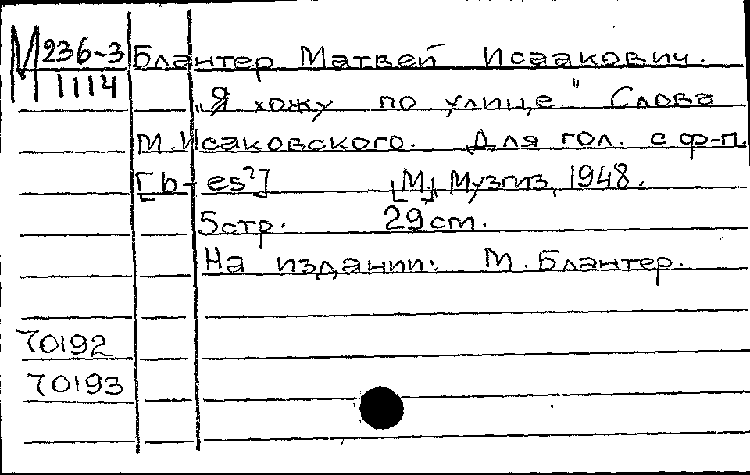 М 236-3 Блантер Матвей Исаакович.
1114
„Я хожу по улице" Слова
М.Исаковского. Для гол. с ф-п.
[b - es²] [М], Музгиз, 1948.
5стр. 29см.
На издании: М.Блантер.
70192
70193